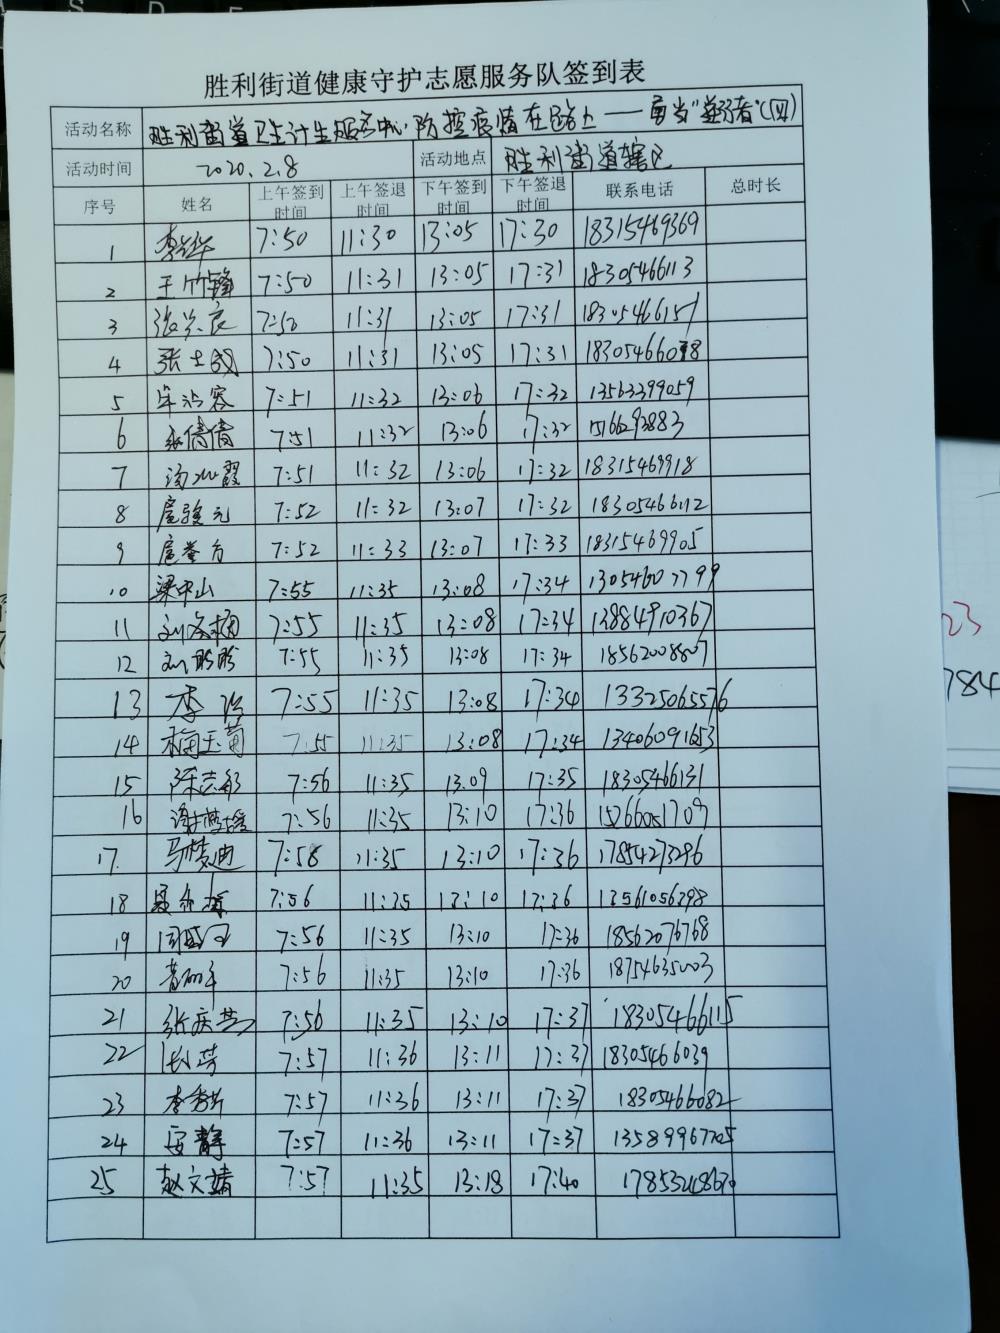 胜利街道健康守护志愿服务队签到表
活动名称 胜利街道卫生计生服务中心防控疫情在路上——勇当"逆行者"(四)
活动时间 2020.2.8 活动地点 胜利街道辖区
序号 姓名 上午签到时间 上午签退时间 下午签到时间 下午签退时间 联系电话 总时长
1 7:50 11:30 13:05 17:30 18315469369
2 王竹锋 7:50 11:31 13:05 17:31 18305466113
3 张兴良 7:50 11:31 13:05 17:31 18305466157
4 张士成 7:50 11:31 13:05 17:31
5 7:51 11:32 13:06 17:32 13563399059
6 张倩倩 7:51 11:32 13:06 17:32
7 7:51 11:32 13:06 17:32 18315469918
8 7:52 11:32 13:07 17:32 18305466112
9 7:52 11:33 13:07 17:33 18315469905
10 梁中山 7:55 11:35 13:08 17:34 13054607799
11 7:55 11:35 13:08 17:34 13884910367
12 刘盼盼 7:55 11:35 13:08 17:34 18562008807
13 李 7:55 11:35 13:08 17:34 13325065576
14 梅玉菊 7:55 11:35 13:08 17:34 13406091653
15 陈志 7:56 11:35 13:09 17:35 18305466131
16 谢梦瑶 7:56 11:35 13:10 17:36 15266051709
17 马梦迪 7:58 11:35 13:10 17:36 17854273296
18 7:56 11:35 13:10 17:36 13561056398
19 7:56 11:35 13:10 17:36 18562076768
20 7:56 11:35 13:10 17:36 18754635003
21 张庆 7:56 11:35 13:10 17:37 18305466115
22 7:57 11:36 13:11 17:37 18305466039
23 李秀 7:57 11:36 13:11 17:37 18305466082
24 安静 7:57 11:36 13:11 17:37 13589967705
25 赵文婧 7:57 11:35 13:18 17:40
23
784